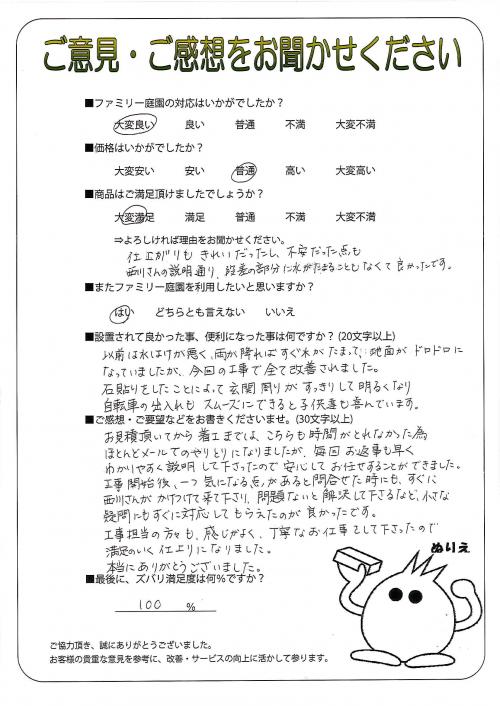 ご意見・ご感想をお聞かせください
■ファミリー庭園の対応はいかがでしたか？
大変良い 良い 普通 不満 大変不満
■価格はいかがでしたか？
大変安い 安い 普通 高い 大変高い
■商品はご満足頂けましたでしょうか？
大変満足 満足 普通 不満 大変不満
⇒よろしければ理由をお聞かせください。
仕上がりもきれいだったし、不安だった点も
西川さんの説明通り、段差の部分に水がたまることもなくて良かったです。
■またファミリー庭園を利用したいと思いますか？
はい どちらとも言えない いいえ
■設置されて良かった事、便利になった事は何ですか？(20文字以上)
以前は水はけが悪く、雨が降ればすぐ水がたまって、地面がドロドロに
なっていましたが、今回の工事で全て改善されました。
石貼りをしたことによって玄関周りがすっきりして明るくなり
自転車の出入れもスムーズにできると子供達も喜んでいます。
■ご感想・ご要望などをお書きくださいませ。(30文字以上)
お見積頂いてから着工までは、こちらも時間がとれなかった為
ほとんどメールでのやりとりになりましたが、毎回お返事も早く
わかりやすく説明して下さったので安心してお任せすることができました。
工事開始後、一つ気になる点があると問合せた時にも、すぐに
西川さんがかけつけて来て下さり、問題ないと解決して下さるなど、小さな
疑問にもすぐに対応してもらえたのが良かったです。
工事担当の方々も、感じがよく、丁寧なお仕事をして下さったので
満足のいく仕上りになりました。
本当にありがとうございました。
■最後に、ズバリ満足度は何％ですか？
100 ％
ぬりえ
ご協力頂き、誠にありがとうございました。
お客様の貴重な意見を参考に、改善・サービスの向上に活かして参ります。